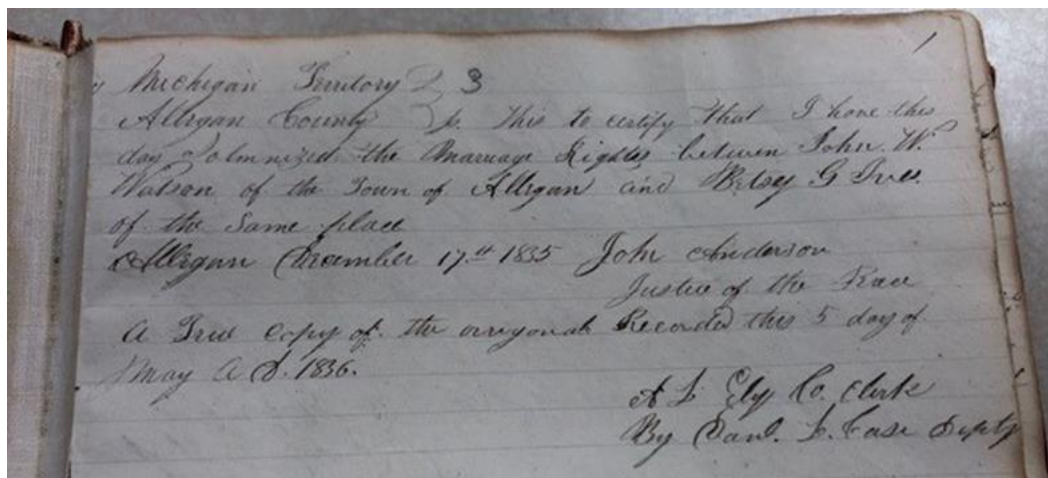 1
Michigan Territory } 3
Allegan County } ss. This to certify that I have this
day Solmnized the Marriage Rights between John W.
Watson of the Town of Allegan and Betsy G Ives.
of the Same place
Allegan December 17th 1835 John Anderson
Justice of the Peace
A True copy of the orrigonal Recorded this 5 day of
May A D. 1836.
A L Ely Co. Clerk
By Danl. L. Case Deputy